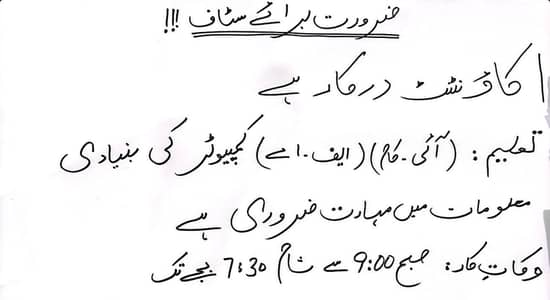 ضرورت برائے سٹاف !!!
اکاؤنٹنٹ درکار ہے
تعلیم : (آئی-کام) (ایف-اے) کمپیوٹر کی بنیادی
معلومات میں مہارت ضروری ہے
وقات کار: صبح 9:00 سے شام 7:30 بجے تک